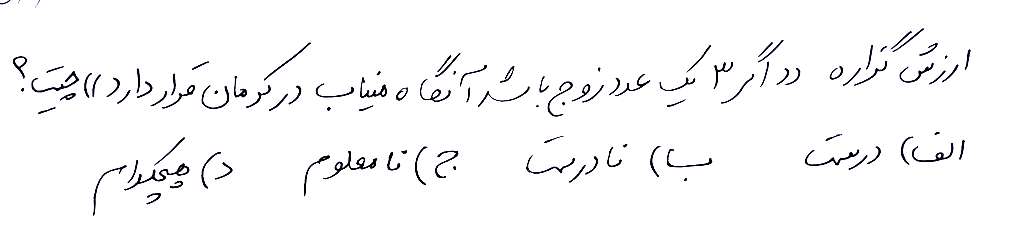 ارزش گزاره «اگر ۳ یک عدد زوج باشد آنگاه میناب در کرمان قرار دارد» چیست؟
الف) درست ب) نادرست ج) نامعلوم د) هیچکدام